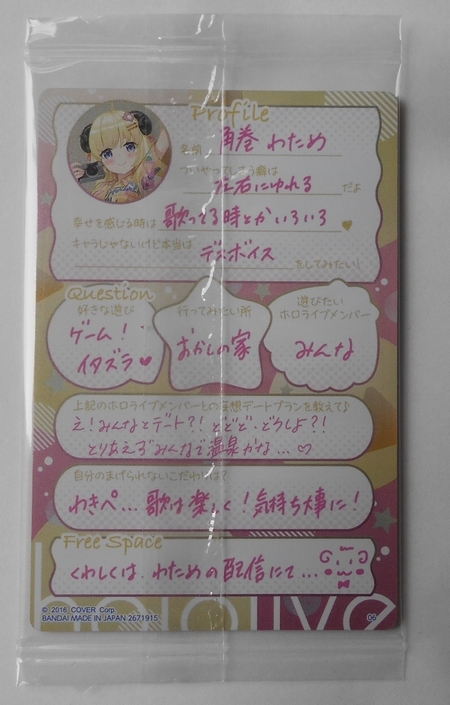 Profile
名前 角巻 わため
ついやってしまう癖は
左右にゆれる だよ
幸せを感じる時は 歌ってる時とかいろいろ ♥
キャラじゃないけど本当は
デスボイス をしてみたい!
Question
好きな遊び
ゲーム!
イタズラ♥
行ってみたい所
おかしの家
遊びたい
ホロライブメンバー
みんな
上記のホロライブメンバーとの妄想デートプランを教えて♪
え!みんなとデート?!とどど、どうしよ?!
とりあえずみんなで温泉かな…♡
自分のまげられないこだわりは?
わきぺ…歌は楽しく!気持ち大事に!
Free Space
くわしくは、わための配信にて…
hololive
© 2016 COVER Corp.
BANDAI MADE IN JAPAN 2671915
06